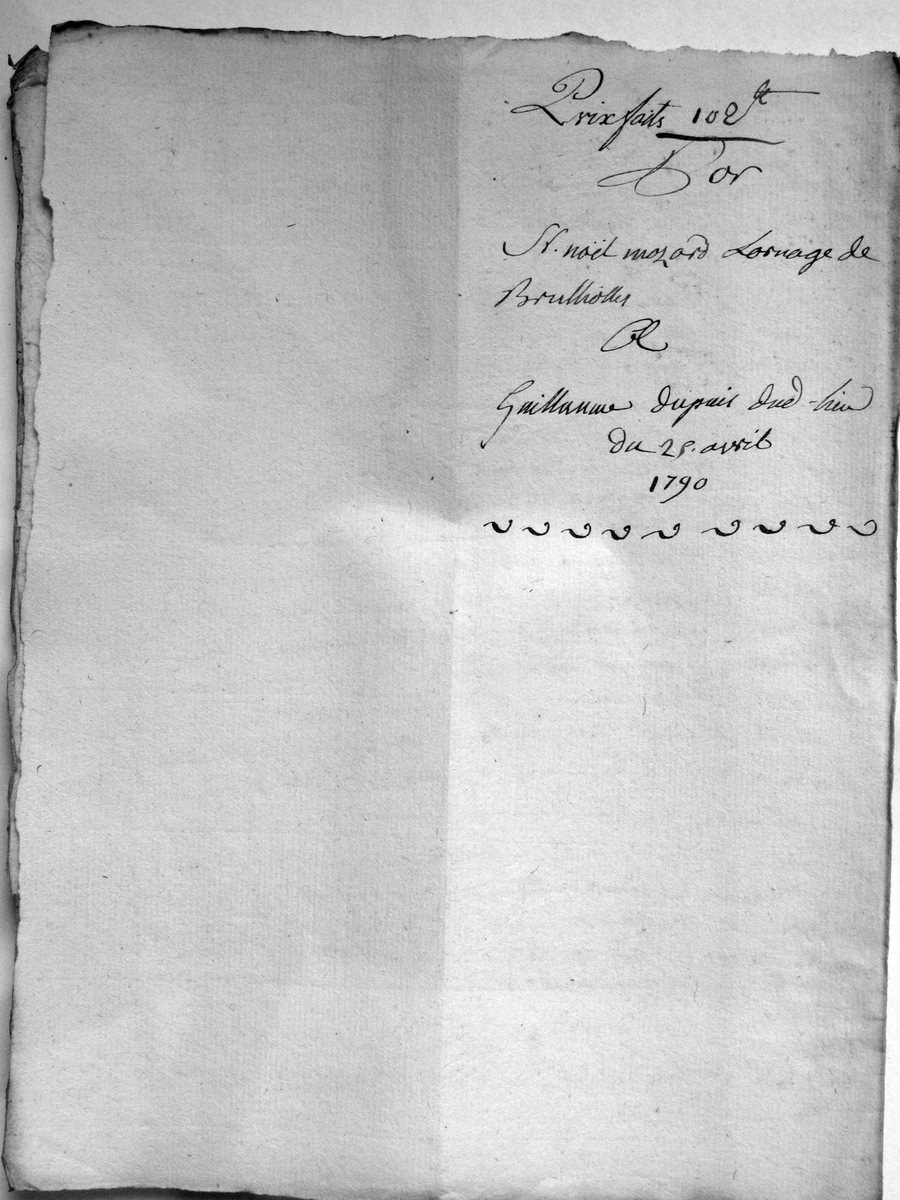 Prixfaits 102ᵗᵗ
Por
Sr. noël mozard Lornage de
Brullioles
Et
Guillaume dupuis dud-lieu
du 25. avril
1790